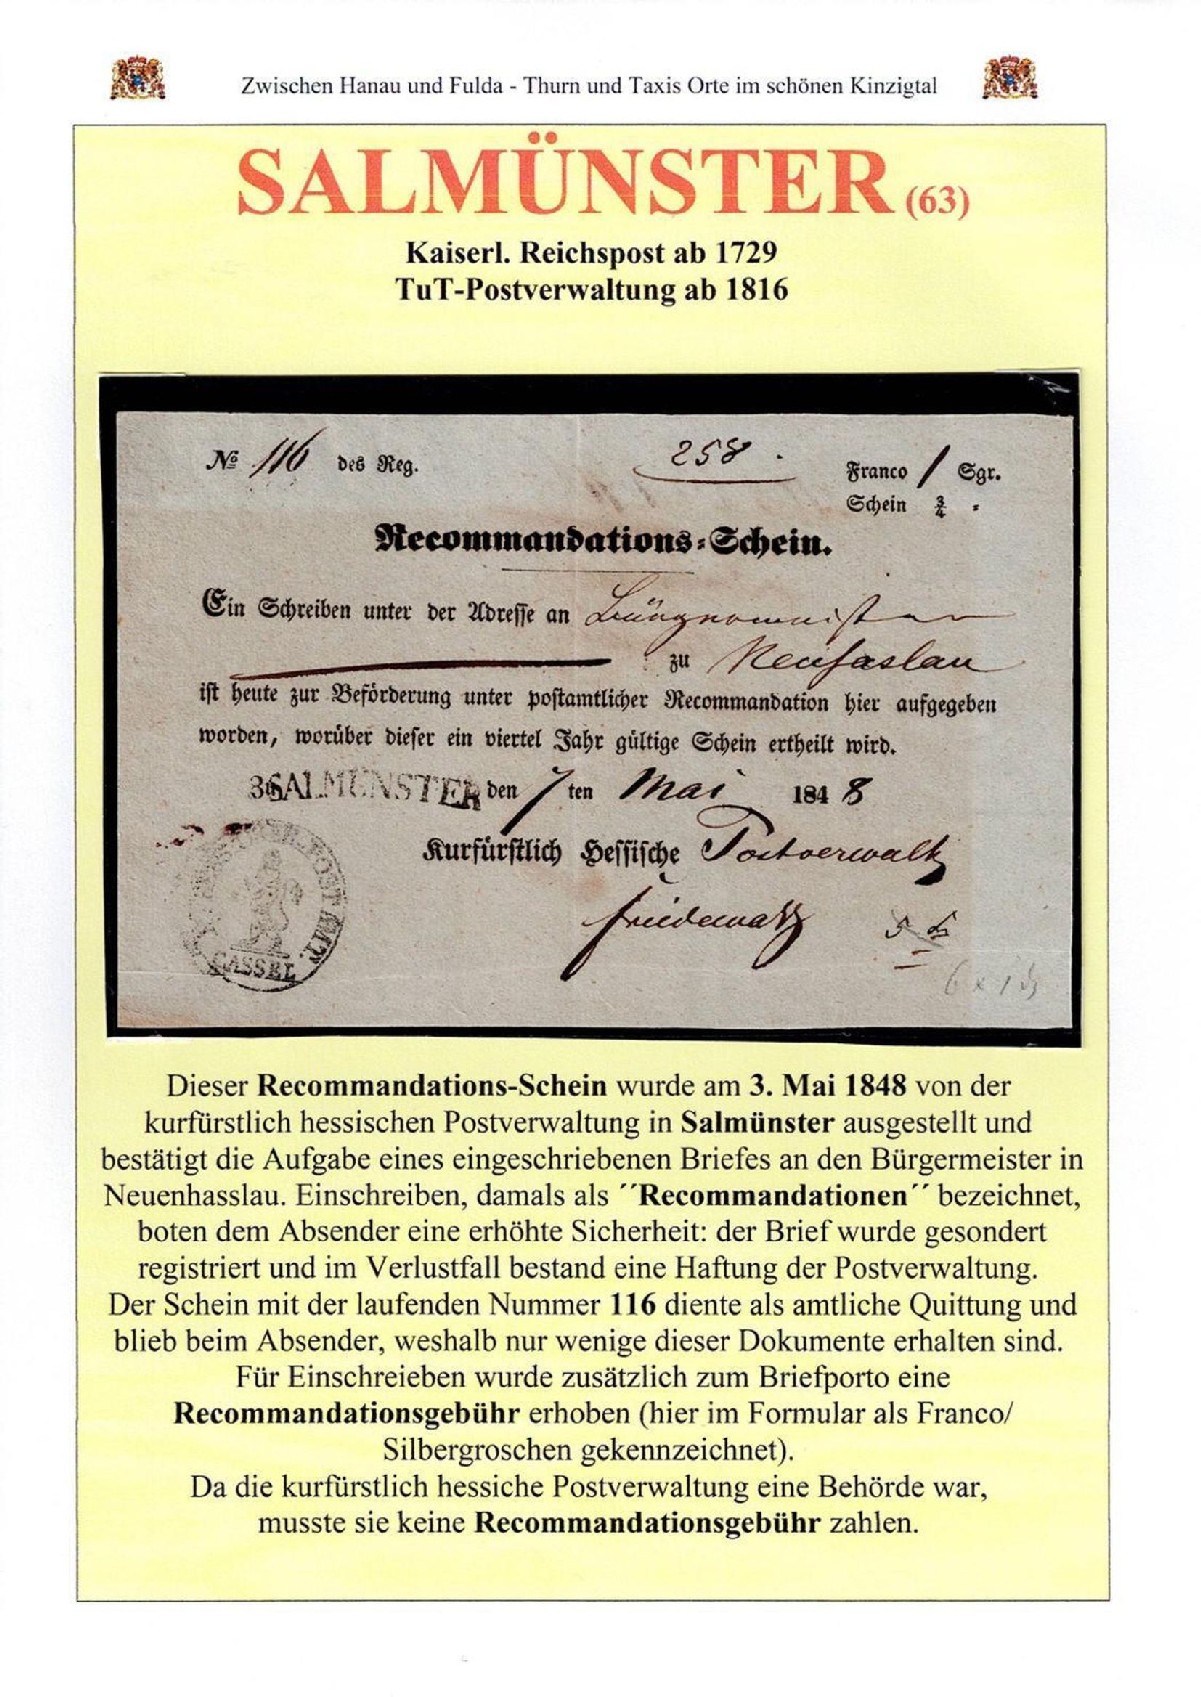 Zwischen Hanau und Fulda - Thurn und Taxis Orte im schönen Kinzigtal
SALMÜNSTER (63)
Kaiserl. Reichspost ab 1729
TuT-Postverwaltung ab 1816
No 116 des Reg.
258.
Franco 1 Sgr.
Schein ¾ "
Recommandations-Schein.
Ein Schreiben unter der Adresse an Bürgermeister
zu Neuhaslau
ist heute zur Beförderung unter postamtlicher Recommandation hier aufgegeben
worden, worüber dieser ein viertel Jahr gültige Schein ertheilt wird.
SALMÜNSTER den 7 ten Mai 1848
Kurfürstlich Hessische Postverwaltg
Friedewald
POST AMT.
CASSEL
6 x
Dieser Recommandations-Schein wurde am 3. Mai 1848 von der
kurfürstlich hessischen Postverwaltung in Salmünster ausgestellt und
bestätigt die Aufgabe eines eingeschriebenen Briefes an den Bürgermeister in
Neuenhasslau. Einschreiben, damals als ´´Recommandationen´´ bezeichnet,
boten dem Absender eine erhöhte Sicherheit: der Brief wurde gesondert
registriert und im Verlustfall bestand eine Haftung der Postverwaltung.
Der Schein mit der laufenden Nummer 116 diente als amtliche Quittung und
blieb beim Absender, weshalb nur wenige dieser Dokumente erhalten sind.
Für Einschreieben wurde zusätzlich zum Briefporto eine
Recommandationsgebühr erhoben (hier im Formular als Franco/
Silbergroschen gekennzeichnet).
Da die kurfürstlich hessiche Postverwaltung eine Behörde war,
musste sie keine Recommandationsgebühr zahlen.